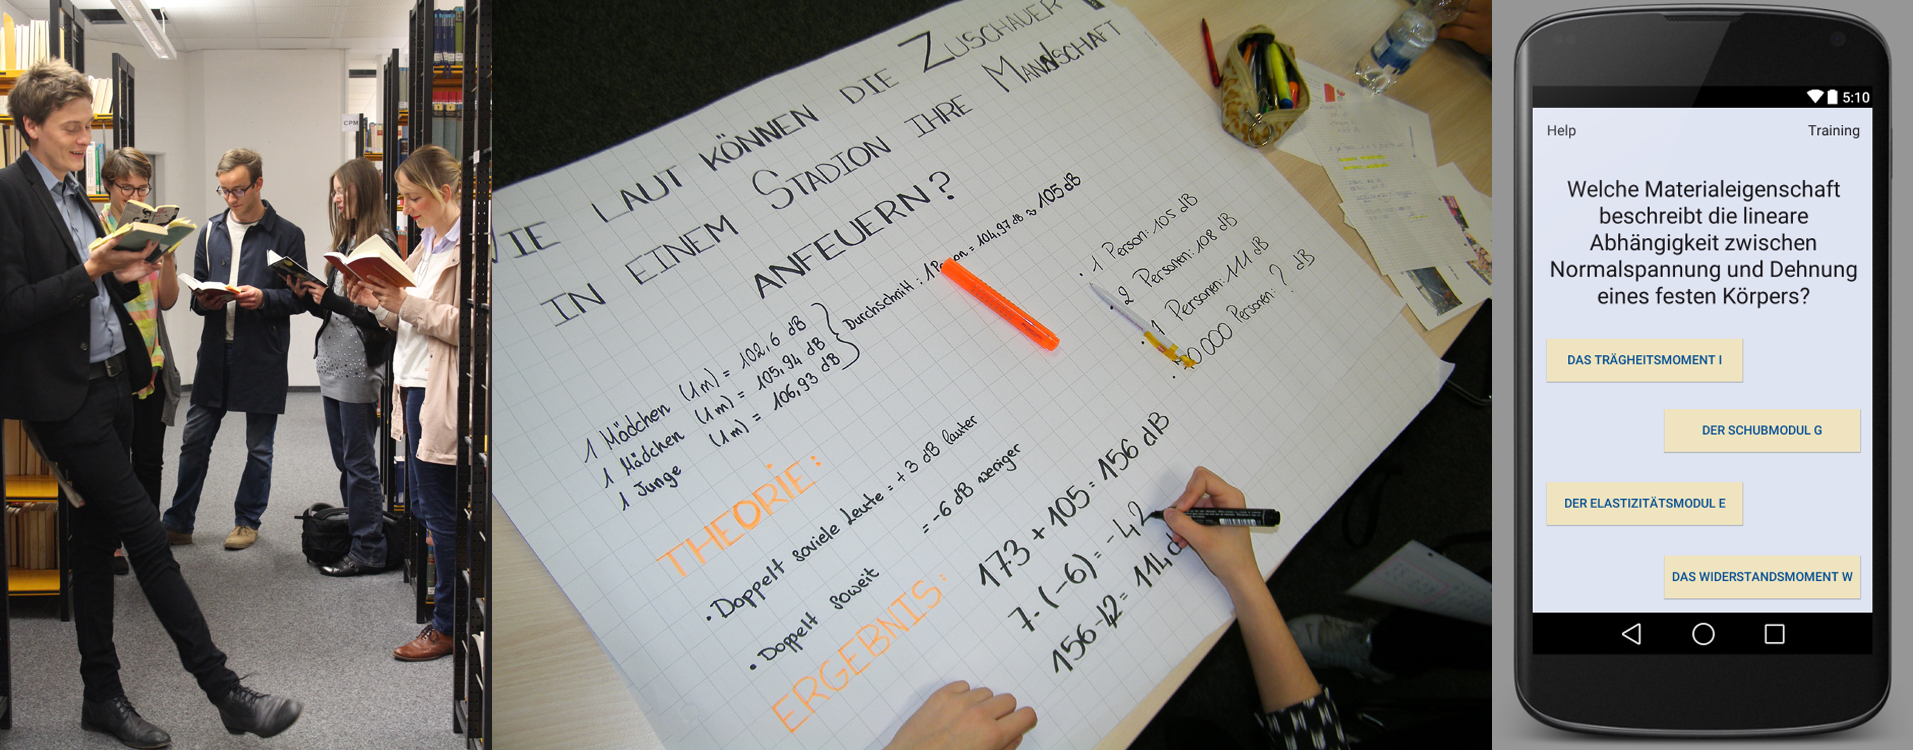 CPM
WIE LAUT KÖNNEN DIE ZUSCHAUER
IN EINEM STADION IHRE MANNSCHAFT
ANFEUERN?
1 Mädchen (1m) = 102,6 dB
1 Mädchen (1m) = 105,94 dB
1 Junge (1m) = 106,93 dB
Durchschnitt: 1 Person = 104,97 dB ≈ 105 dB
• 1 Person: 105 dB
• 2 Personen: 108 dB
• Personen: 111 dB
• 0 000 Personen: ? dB
THEORIE:
• Doppelt soviele Leute = +3 dB lauter
• Doppelt soweit = -6 dB weniger
ERGEBNIS:
173 + 105 = 156 dB
7·(-6) = -42
156-42 = 114 d
5:10
Help
Training
Welche Materialeigenschaft
beschreibt die lineare
Abhängigkeit zwischen
Normalspannung und Dehnung
eines festen Körpers?
DAS TRÄGHEITSMOMENT I
DER SCHUBMODUL G
DER ELASTIZITÄTSMODUL E
DAS WIDERSTANDSMOMENT W